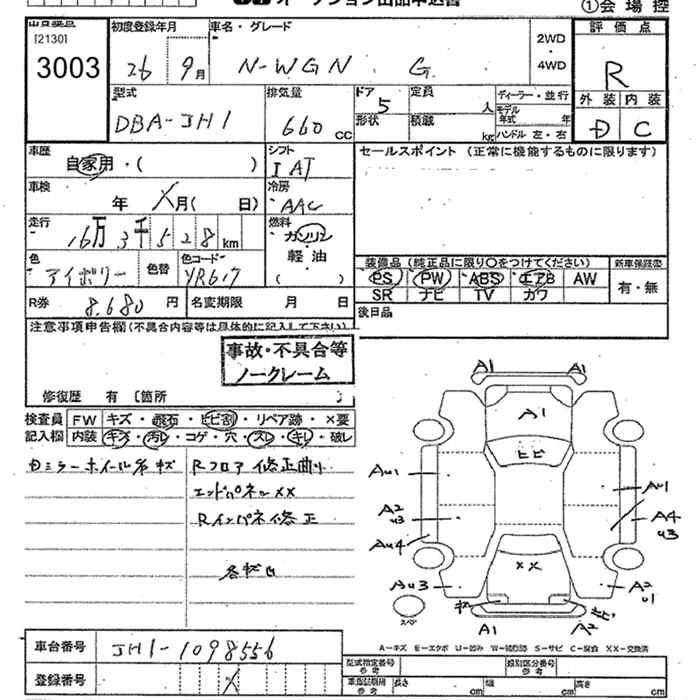 オークション出品申込書
①会場控
[2130]
3003
初度登録年月
26 9月
車名・グレード
N-WGN G
2WD
・
4WD
評価点
R
型式
DBA-JH1
排気量
660 CC
ドア
5
定員
人
形状
積載
kg
ディーラー・並行
モデル年式
年
ハンドル 左・右
外装 内装
D C
車歴
自家用・( )
シフト
IAT
セールスポイント (正常に機能するものに限ります)
車検
年 X月( 日)
冷房
AAC
走行
16万3千528km
燃料
ガソリン
軽油
( )
色
アイボリー
色替
色コード
YR617
装備品 (純正品に限り○をつけてください)
新車保証書
PS PW ABS エアB AW
SR ナビ TV カワ
有・無
R券 8.680円
名変期限 月 日
後日品
注意事項申告欄(不具合内容等は具体的に記入して下さい)
事故・不具合等
ノークレーム
修復歴 有 [箇所 ]
検査員 FW キズ・飛石・ヒビ割・リペア跡・×要
記入欄 内装 キズ・汚レ・コゲ・穴・スレ・キレ・破レ
Rフロア修正曲り
エンドパネルXX
Rインパネ修正
A1 A1
A1
ヒビ
Au1
Au1
A2
u3
A4
u3
Au4
XX
Au3
A2
u1
スペア
A1
A2
ヒビ
A-キズ E-エクボ U-凹み W-補修跡 S-サビ C-腐食 XX-交換済
車台番号 JH1-1098556
登録番号 X
型式指定番号
参考
類別区分番号
参考
車箇証明用
参考
長さ cm 幅 cm 高さ cm